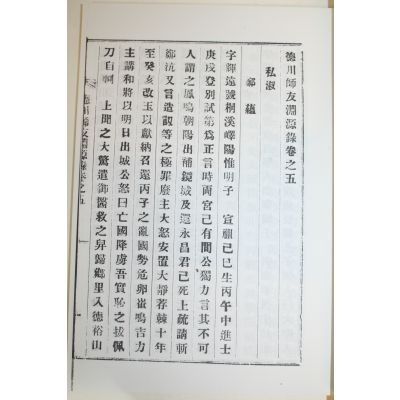 德川師友淵源錄卷之五
私淑
鄭蘊
字輝遠號桐溪嶧陽惟明子 宣廟己巳生丙午中進士
庚戌登別試第爲正言時兩宮己有間公獨力言其不可
人謂之鳳鳴朝陽出補鏡城及還永昌君己死上疏請斬
鄭沆又言造訒等之極罪廢主大怒安置大靜荐棘十年
至癸亥改玉以獻納召還丙子之亂國勢危卵崔鳴吉力
主講和將以明日出城公怒曰亡國降虜吾實恥之拔佩
刀自 上聞之大驚遣御醫救之舁歸鄉里入德裕山
德川師友淵源錄卷之五